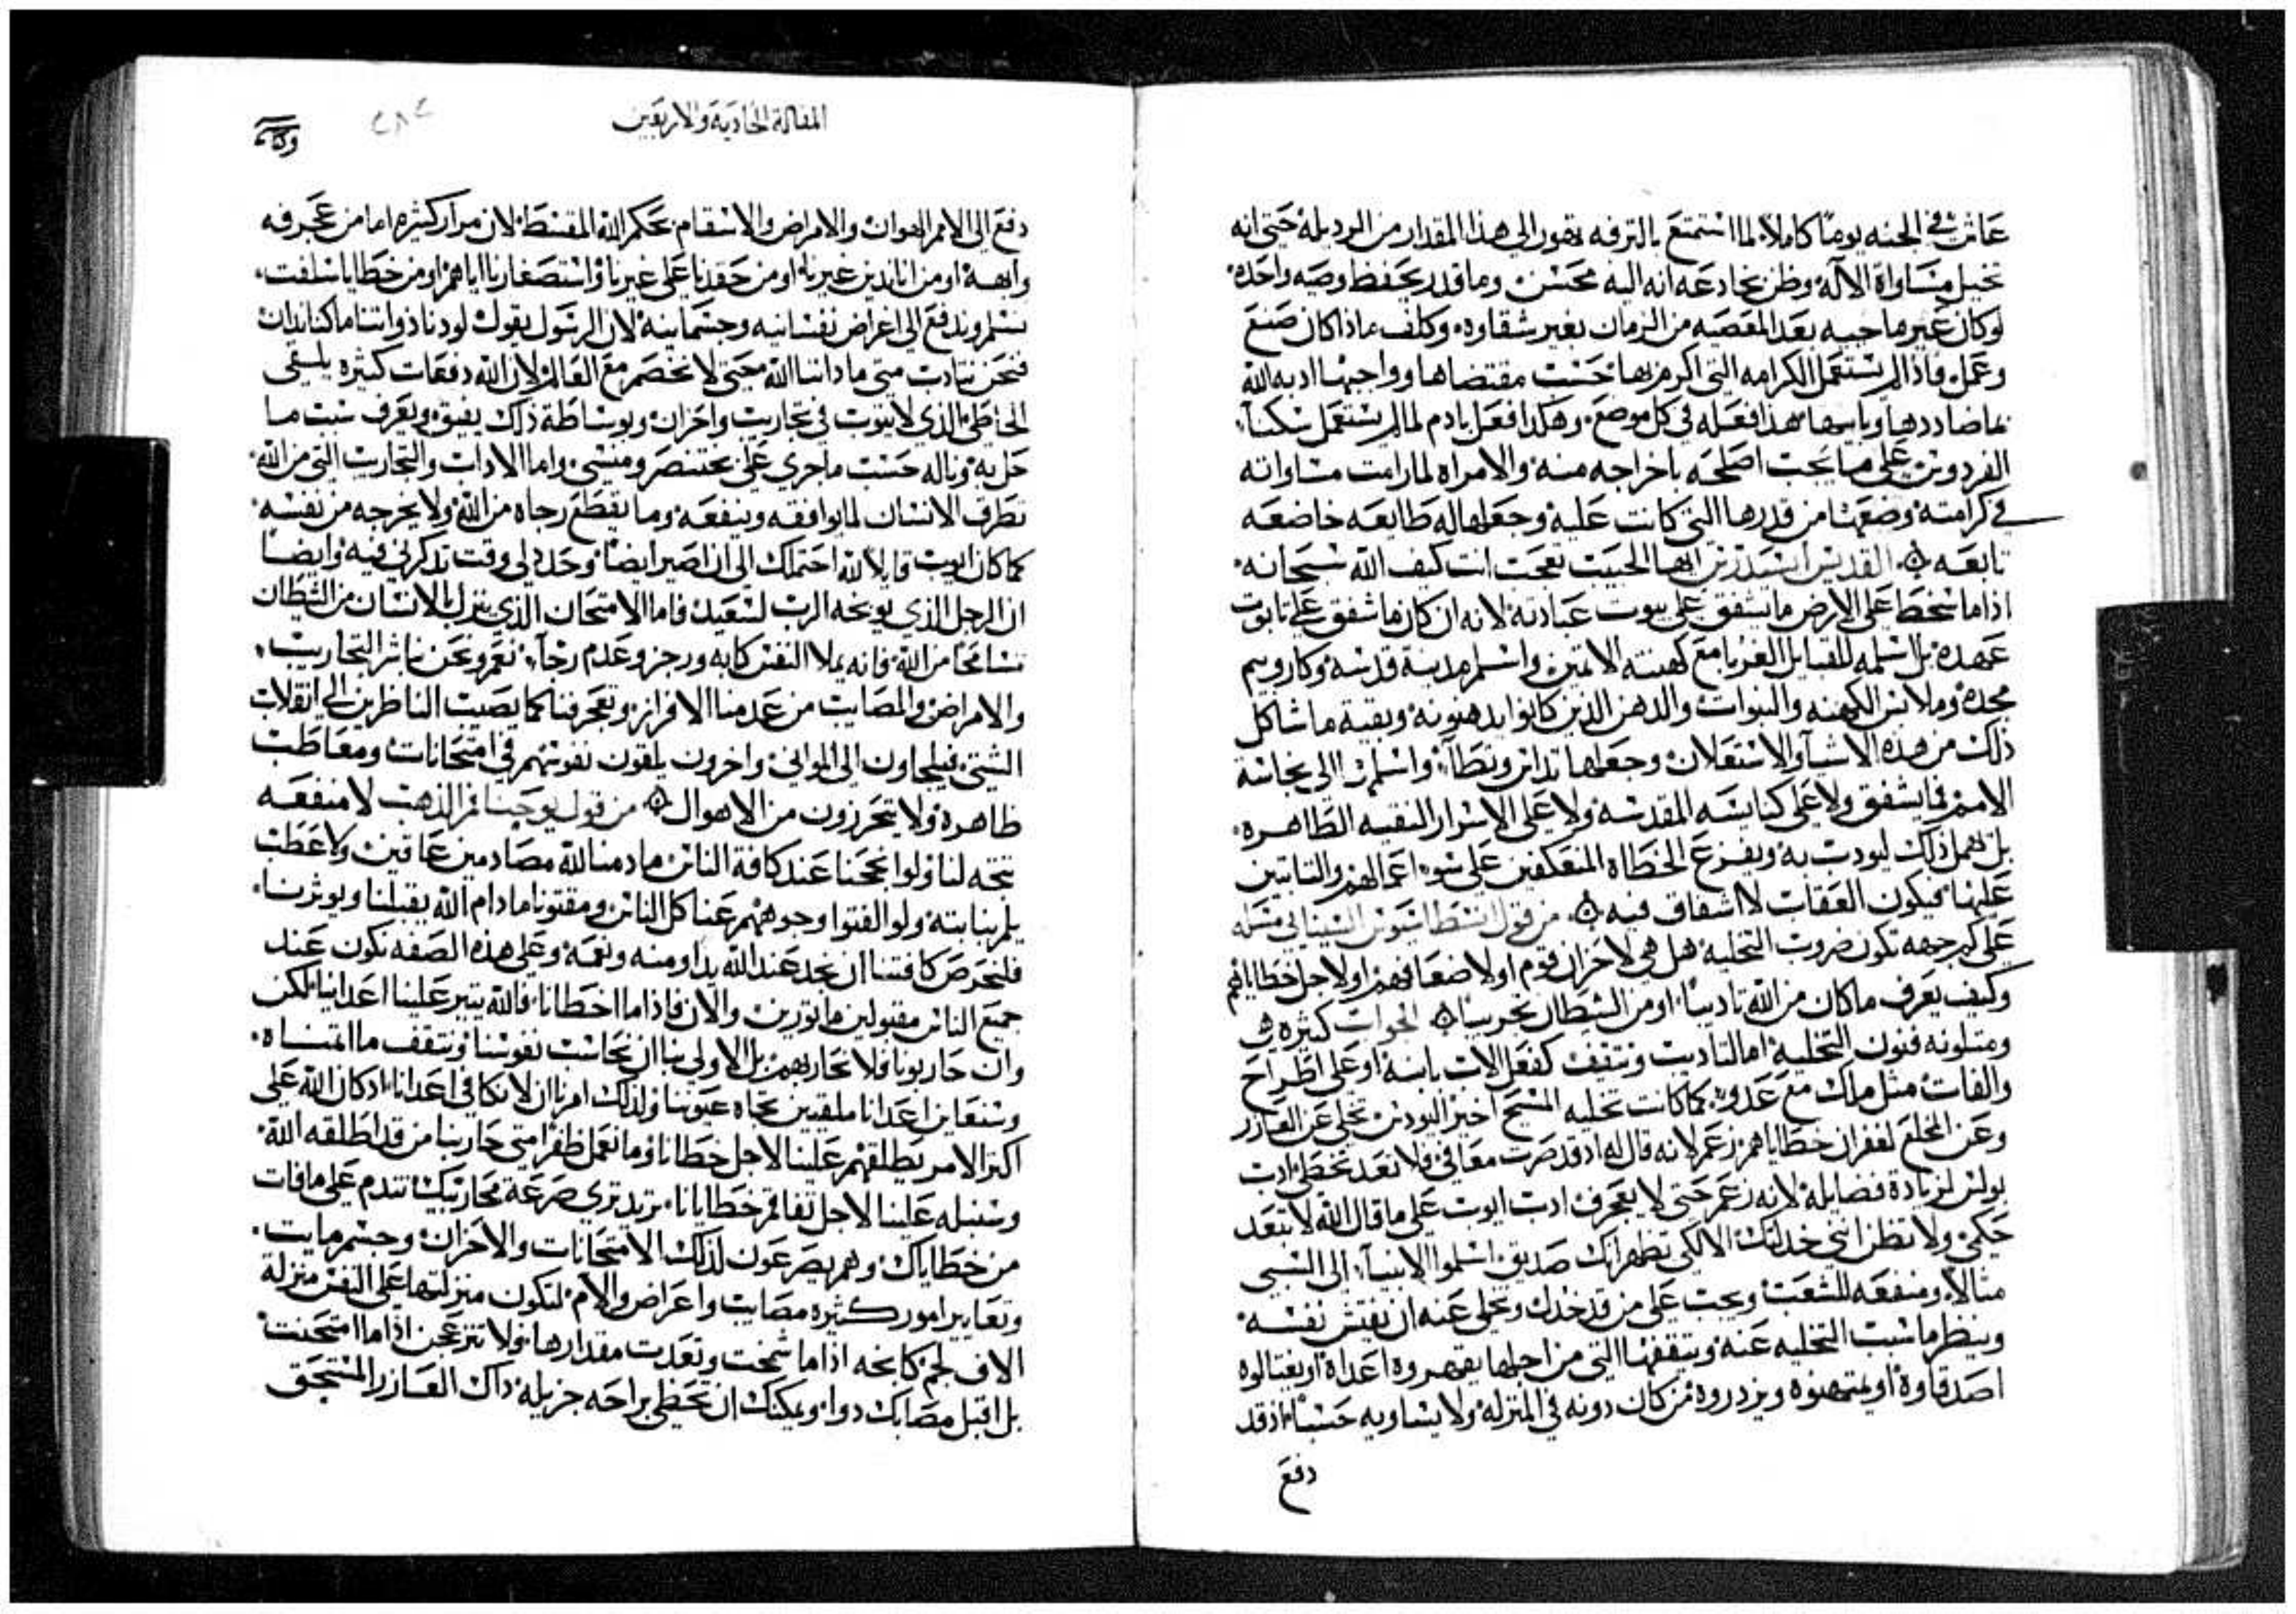 عاش في الجنه يوما كاملا لما استمتع بالترفه تهور الى هذا المقدار من الرديله حتى انه
تخيل مساواة الاله وظن بخادعه انه اليه محسن وما قدر يحفظ وصيه واحده
لو كان غير ما حيه بعد المعصيه من الزمان بغير شقاوه وكلف ماذا كان صنع
وعمل فاذا لم يستعمل الكرامه التي اكرم بها حسب مقتضاها وواجبها ادبه الله
بما ضاددها هذا فعله في كل موضع وهكذا فعل بادم لما لم يستعمل سكنا
الفردوس على ما يجب اصلحه باخراجه منه والامراه لما رامت مساواته
في كرامته وضعها من قدرها التي كانت عليه وجعلها له طايعه خاضعه
تابعه القديس ايها الحبيب تعجب انت كيف الله سبحانه
اذا ما سخط على الارض ما يشفق على بيوت عبادته لانه ان كان ما شفق على تابوت
عهده بل اسلمه للقبايل الغربا مع كهنته الاثمين واسلم مدينة قدسه وكاروبيم
مجده وملابس الكهنه والنبوات والدهن الذين كانوا يدهنونه وبقية ما شاكل
ذلك من هذه الاشيا والاستعلان وجعلها تداس وتطا واسلمت الى نجاسة
الامم فما يشفق ولا على كنايسه المقدسه ولا على الاسرار النقيه الطاهره
بل يهمل ذلك ليودب به ويفزع الخطاه المنعكفين على سوء اعمالهم والثابتين
عليها فيكون العقاب لا اشفاق فيه من قول انسطاسيوس السينايي مسله
على كم جهه تكون ضروب التخليه هل هي لاحزان قوم او لاضعافهم او لاجل خطاياهم
وكيف يعرف ما كان من الله تاديبا او من الشيطان تجريبا الجواب كثيره هي
ومتلونه فنون التخليه اما لتاديب وتثقف كفعل الاب بابنه او على اطراح
والفات مثل ملك مع عدوه كما كانت تخليه المسيح اخيرا ليودس تخلى عن العازر
وعن المخلع لغفران خطاياهم زعم لانه قال له اد قد صرت معافى فلا تعد تخطى ادب
بولس لزيادة فضايله لانه زعم حتى لا يعجرف ادب ايوب على ما قال الله لا تبعد
حكمي ولا تظن انني خدلتك الا لكي تظهر انك صديق اسلموا الانبيا الى السبي
مثالا ومنفعه للشعب ويجب على من قد خدل وتخلى عنه ان يفتش نفسه
وينظر ما سبب التخليه عنه ويتقفها التي من اجلها يقهروه اعداه او يغتالوه
اصدقاوه او يمتهنوه ويزدروه من كان دونه في المنزله ولا يساويه حسبا اذ قد
دفع
المقالة الحادية والاربعين
دفع الى الالام الهوان والامراض والاسقام بحكم الله المقسط لان مرار كثيره اما من عجرفه
وابهه او من او من حقدنا على غيرنا واستصغارنا اياهم او من خطايا سلفت
نسلم وندفع الى اغراض نفسانيه وجسمانيه لان الرسول يقول لو دنا ذواتنا ما كنا ندان
فنحن نتادب متى ما داننا الله حتى لا نخصم مع العالم لان الله دفعات كثيره يلقى
الخاطى الذي لا يتوب في تجاريب واحزان وبوساطة ذلك يفيق ويعرف سبب ما
حل به وناله حسب ما جرى على بختنصر ومنسى واما الادات والتجاريب التي من الله
تطرق الانسان لما يوافقه وينفعه وما يقطع رجاه من الله ولا يخرجه من نفسه
كما كان ايوب قايلا لله احتملك الى ان اصير ايضا وحدد لي وقت تذكرني فيه وايضا
ان الرجل الذي يوبخه الرب لسعيد فاما الامتحان الذي ينزل بالانسان من الشطان
تسامحا من الله فانه يملا النفس كابه ورجز وعدم رجا نعم ونحن نباشر التجاريب
والامراض والمصايب من عدمنا الافراز وتعجرفنا كما يصيب الناظرين الى انقلاب
الشتى فيلجاون الى المواني واخرون يلقون نفوسهم في امتحانات ومعاطب
ظاهره ولا يتحرزون من الاهوال من قول يوحنا فم الذهب لا منفعه
تتجه لنا ولو انجحنا عند كافة الناس ما دمنا لله مصادمين عاقين ولا عطب
يلم بنا بته ولو الفتوا وجوههم عنا كل الناس ومقتونا ما دام الله يقبلنا ويوثرنا
فلنحرص كافتنا ان نجد عند الله يدا ومنه ونعمه وعلى هذه الصفه نكون عند
جميع الناس مقبولين ماثورين والان فاذا ما اخطانا فالله يثير علينا اعداينا لكن
وان حاربونا فلا نحاربهم بل الاولى بنا ان نحاسب نفوسنا ونتقف ما التمسناه
وسنعاين اعدانا ملقيين تجاه عيوننا ولذلك امرنا ان لا نكافي اعدانا اد كان الله على
اكثر الامر يطلقهم علينا لاجل خطانا وما نعمل ظفرا متى حاربنا من قد اطلقه الله
وسنبله علينا لاجل تفاقم خطايانا تريد ترى صرعة محاربيك تندم على ما فات
من خطاياك وهم يصرعون لذلك الامتحانات والاحزان وجسم مايت
وتعابير امور كثيره مصايب واعراض والام لتكون منزلتها على النفس منزلة
الاف لجم كابحه اذا ما شمخت وتعدت مقدارها ولا تنزعجن اذا ما امتحنت
بل اقبل مصابك دوا ويمكنك ان تحظى براحه جزيله داك العازر المستحق